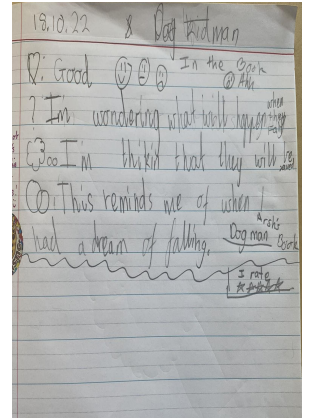 18.10.22 & Dog kidman
In the Book
: Good Ahh
? Im wondering what will happen when they Fall
Im thikid that they will
: This reminds me of when I
had a dream of falling.
Arsh's
Dog man Book
I rate